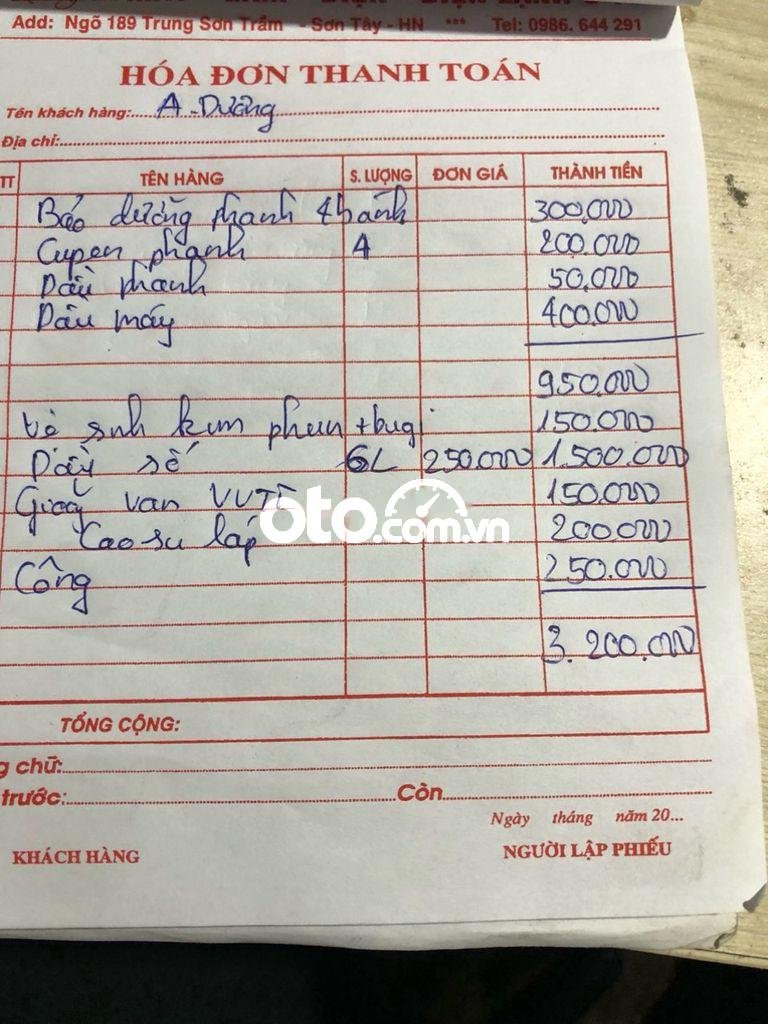 Add: Ngõ 189 Trung Sơn Trầm - Sơn Tây - HN *** Tel: 0986. 644 291
HÓA ĐƠN THANH TOÁN
Tên khách hàng: A. Dưỡng
Địa chỉ:
TT TÊN HÀNG S. LƯỢNG ĐƠN GIÁ THÀNH TIỀN
Bảo dưỡng phanh 4 bánh 300.000
Cupen phanh 4 200.000
Dầu phanh 50.000
Dầu máy 400.000
950.000
Vệ sinh kim phun + bugi 150.000
Dầu số 6L 250.000 1.500.000
Giắc van VVTi 150.000
Cao su láp 200.000
Công 250.000
3.200.000
oto.com.vn
TỔNG CỘNG:
g chữ:
trước: Còn
Ngày tháng năm 20...
KHÁCH HÀNG NGƯỜI LẬP PHIẾU